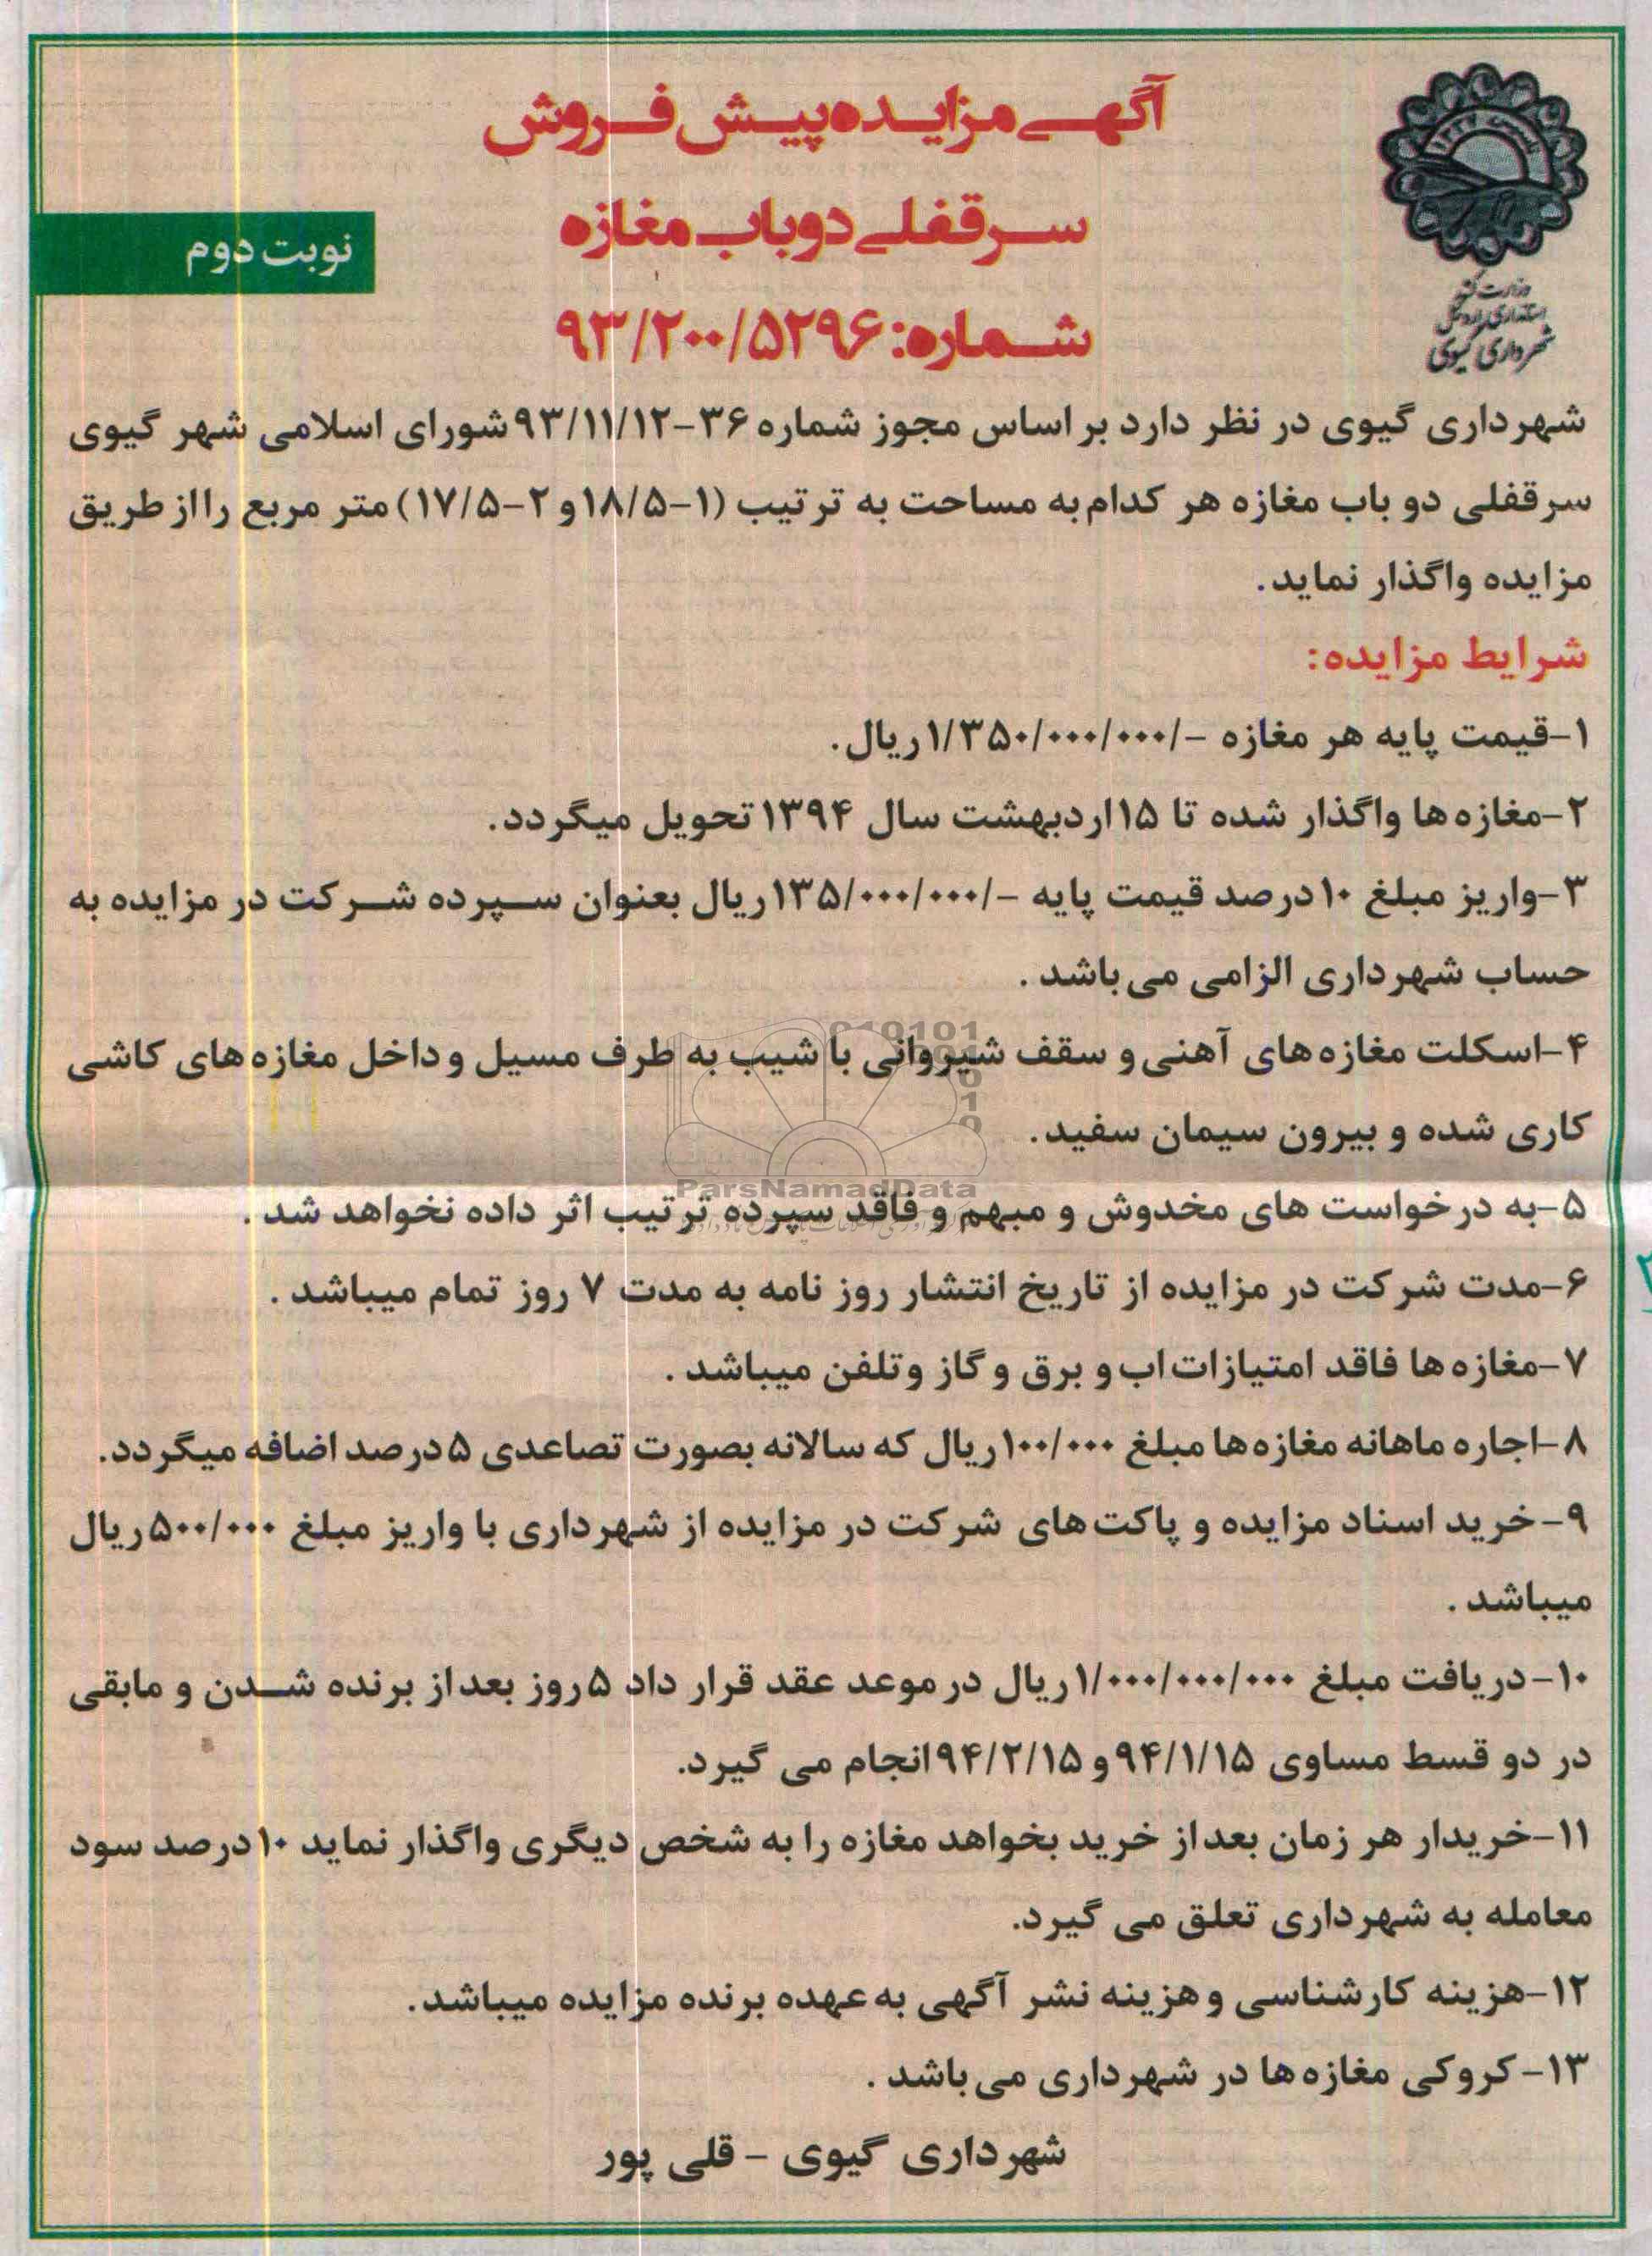 آگهی مزایده پیش فروش
سرقفلی دو باب مغازه
شماره: ۹۳/۲۰۰/۵۲۹۶
نوبت دوم
وزارت کشور
استانداری اردبیل
شهرداری گیوی
شهرداری گیوی در نظر دارد بر اساس مجوز شماره ۳۶-۹۳/۱۱/۱۲ شورای اسلامی شهر گیوی
سرقفلی دو باب مغازه هر کدام به مساحت به ترتیب (۱-۱۸/۵ و ۲-۱۷/۵) متر مربع را از طریق
مزایده واگذار نماید.
شرایط مزایده:
۱-قیمت پایه هر مغازه -/۱/۳۵۰/۰۰۰/۰۰۰ ریال.
۲-مغازه ها واگذار شده تا ۱۵ اردیبهشت سال ۱۳۹۴ تحویل میگردد.
۳-واریز مبلغ ۱۰ درصد قیمت پایه -/۱۳۵/۰۰۰/۰۰۰ ریال بعنوان سپرده شرکت در مزایده به
حساب شهرداری الزامی می باشد .
۴-اسکلت مغازه های آهنی و سقف شیروانی با شیب به طرف مسیل و داخل مغازه های کاشی
کاری شده و بیرون سیمان سفید.
ParsNamadData
۵-به درخواست های مخدوش و مبهم و فاقد سپرده ترتیب اثر داده نخواهد شد .
۶-مدت شرکت در مزایده از تاریخ انتشار روز نامه به مدت ۷ روز تمام میباشد .
۷-مغازه ها فاقد امتیازات اب و برق و گاز وتلفن میباشد .
۸-اجاره ماهانه مغازه ها مبلغ ۱۰۰/۰۰۰ ریال که سالانه بصورت تصاعدی ۵ درصد اضافه میگردد.
۹-خرید اسناد مزایده و پاکت های شرکت در مزایده از شهرداری با واریز مبلغ ۵۰۰/۰۰۰ ریال
میباشد .
۱۰-دریافت مبلغ ۱/۰۰۰/۰۰۰/۰۰۰ ریال در موعد عقد قرار داد ۵ روز بعد از برنده شدن و مابقی
در دو قسط مساوی ۹۴/۱/۱۵ و ۹۴/۲/۱۵ انجام می گیرد.
۱۱-خریدار هر زمان بعد از خرید بخواهد مغازه را به شخص دیگری واگذار نماید ۱۰ درصد سود
معامله به شهرداری تعلق می گیرد.
۱۲-هزینه کارشناسی و هزینه نشر آگهی به عهده برنده مزایده میباشد.
۱۳-کروکی مغازه ها در شهرداری می باشد .
شهرداری گیوی - قلی پور